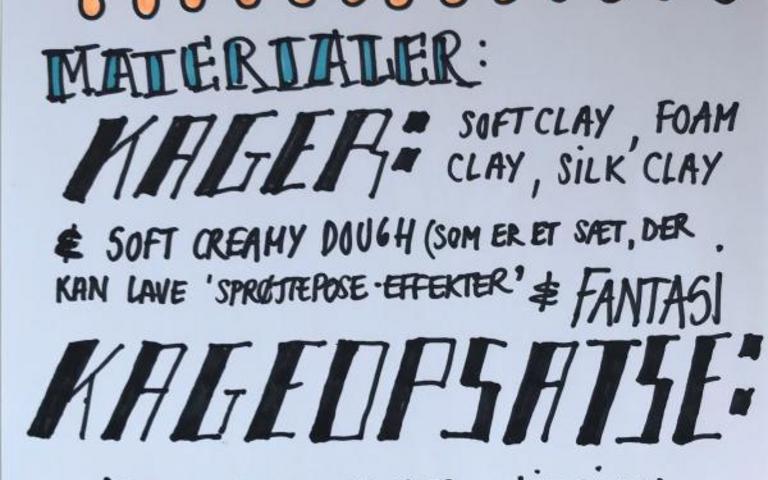 MATERIALER:
KAGER: SOFT CLAY, FOAM
CLAY, SILK CLAY
& SOFT CREAMY DOUGH (SOM ER ET SÆT, DER
KAN LAVE 'SPRØJTEPOSE-EFFEKTER' & FANTASI.
KAGEOPSATSE: